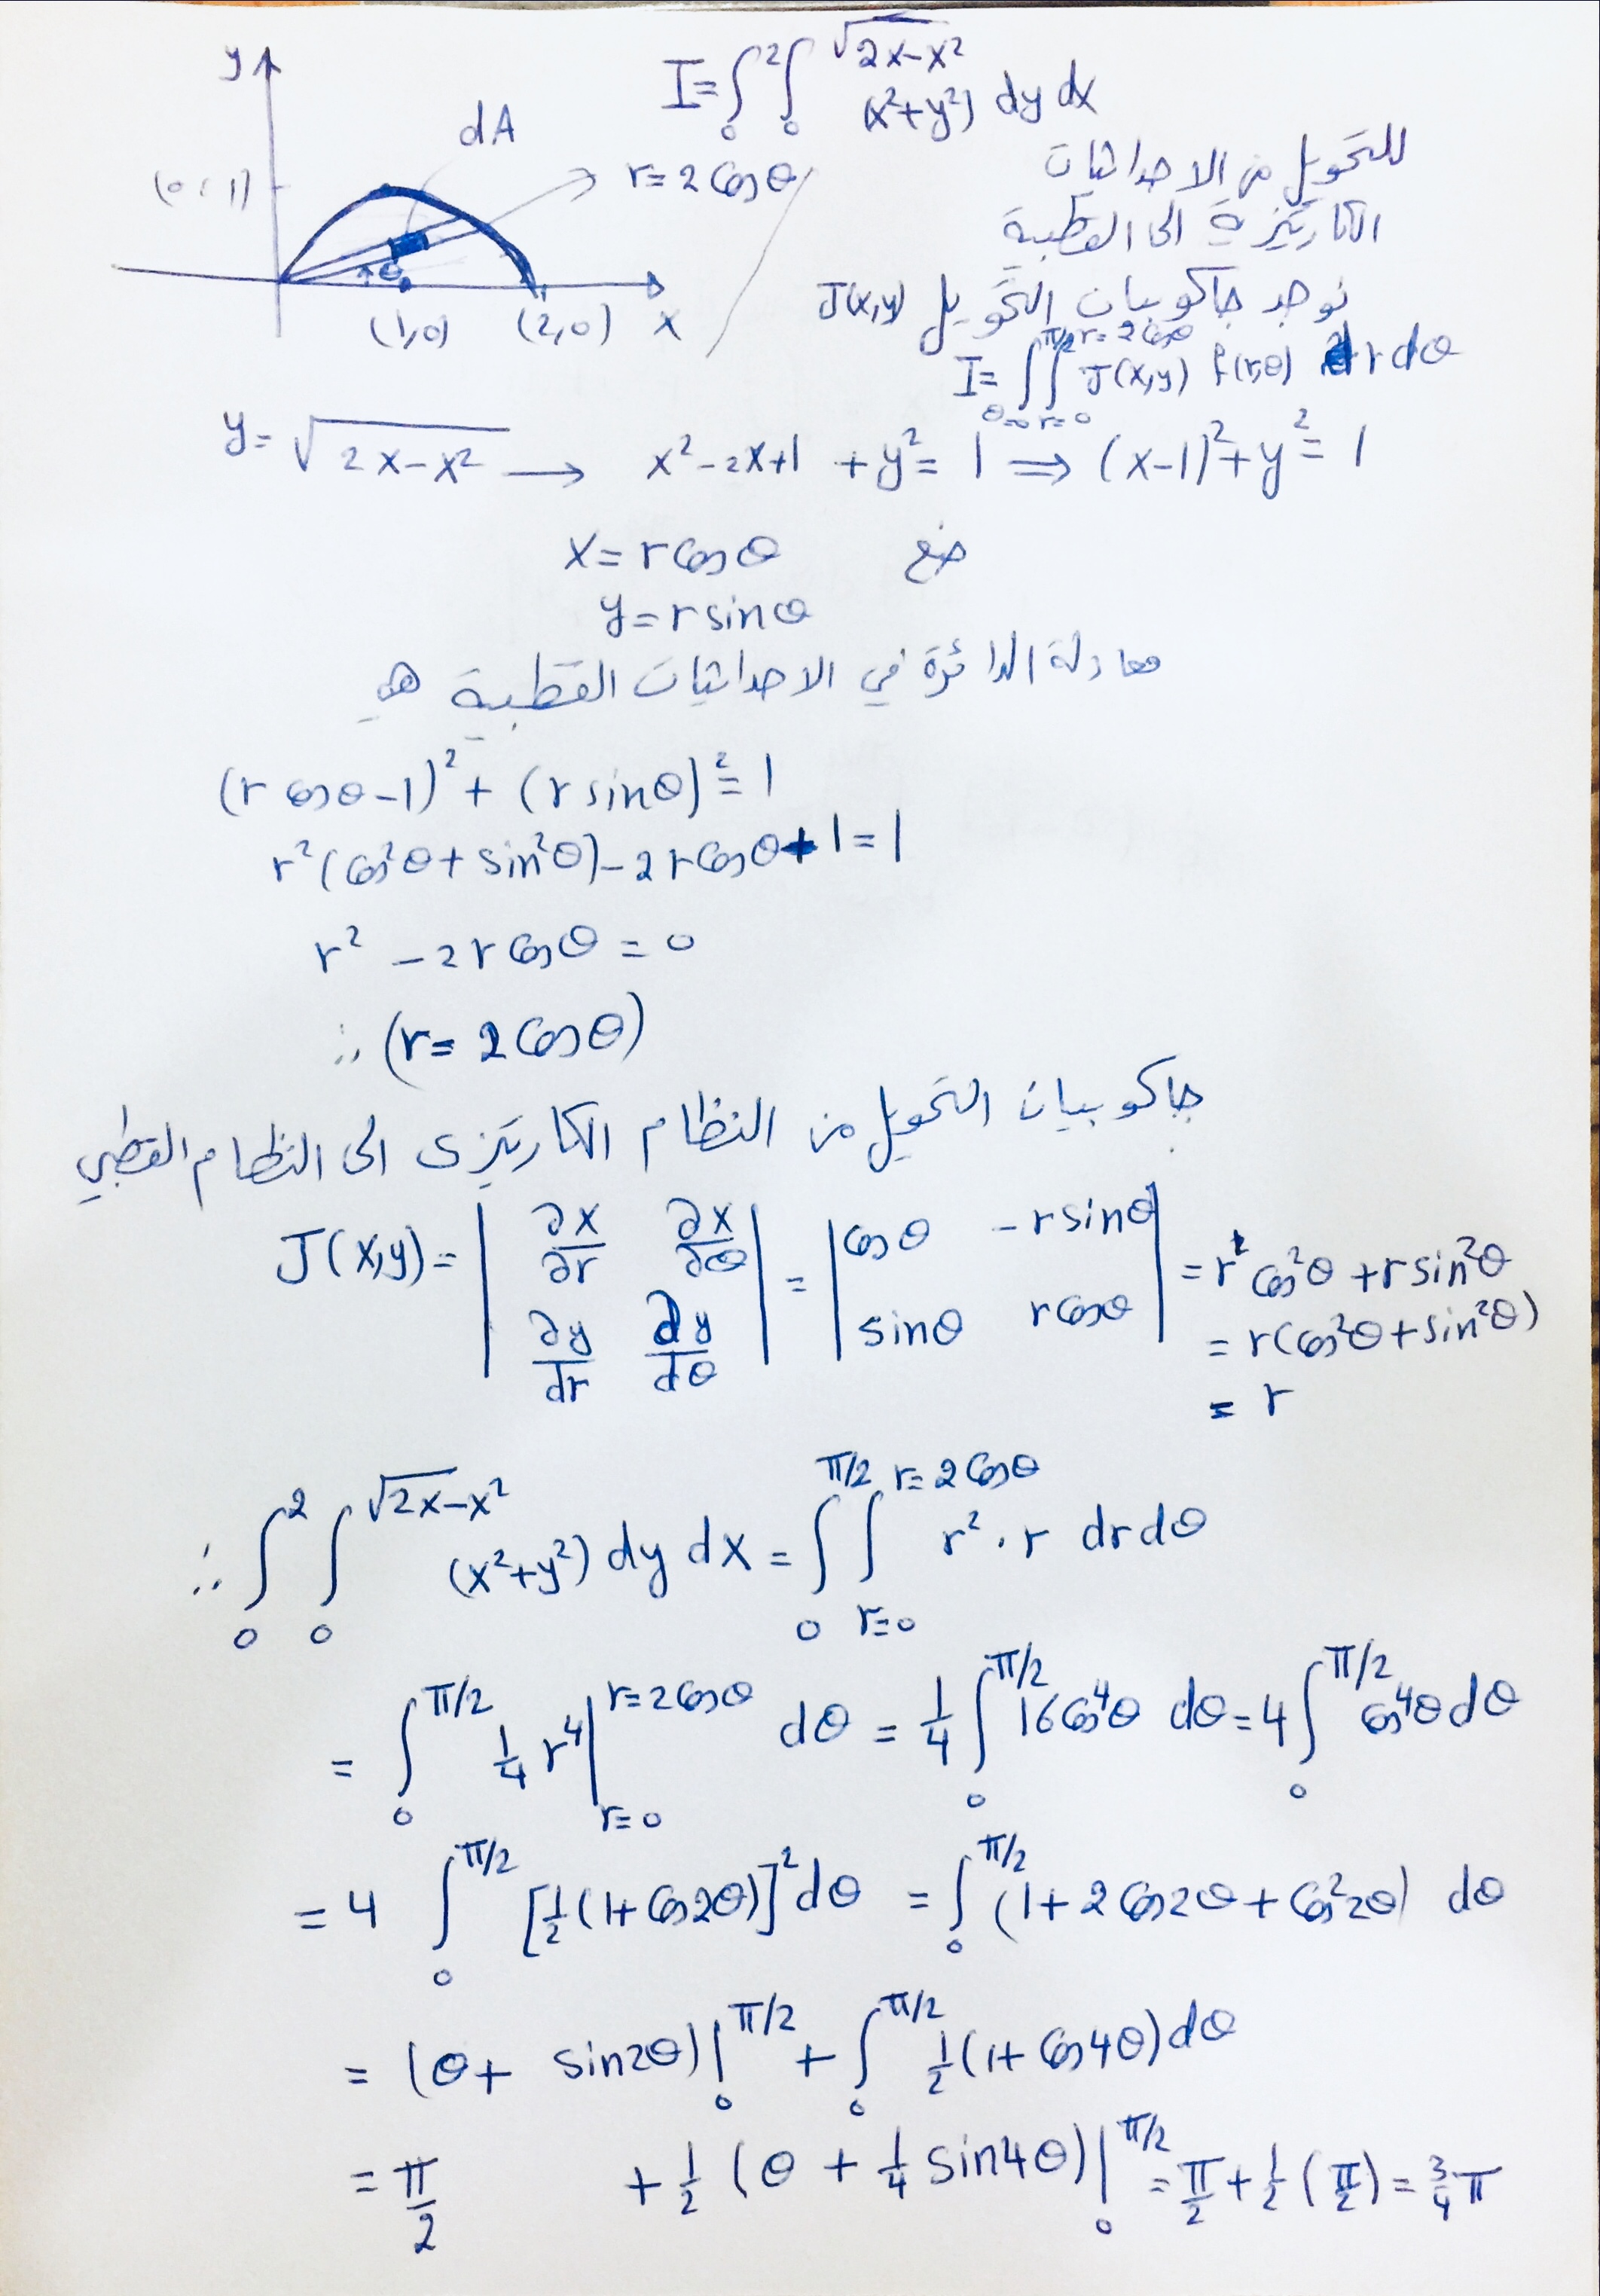 I = ∫₀² ∫₀^√(2x-x²) (x²+y²) dy dx
y
dA
(0,1)
r = 2 cos θ
θ
(1,0) (2,0) x
للتحويل من الاحداثيات
الكارتيزية الى القطبية
نوجد جاكوبيان التحويل J(x,y)
I = ∫_{θ=0}^{π/2} ∫_{r=0}^{r=2cosθ} J(x,y) f(r,θ) dr dθ
y = √(2x-x²) → x²-2x+1 + y² = 1 ⇒ (x-1)² + y² = 1
x = r cos θ ضع
y = r sin θ
معادلة الدائرة في الاحداثيات القطبية هي
(r cos θ -1)² + (r sin θ)² = 1
r²(cos²θ + sin²θ) - 2r cos θ + 1 = 1
r² - 2r cos θ = 0
∴ (r = 2 cos θ)
جاكوبيان التحويل من النظام الكارتيزى الى النظام القطبي
J(x,y) = | ∂x/∂r ∂x/∂θ ; ∂y/dr ∂y/dθ | = | cos θ -r sin θ ; sin θ r cos θ | = r cos²θ + r sin²θ
= r(cos²θ + sin²θ)
= r
∴ ∫₀² ∫₀^√(2x-x²) (x²+y²) dy dx = ∫₀^{π/2} ∫_{r=0}^{r=2cosθ} r² · r dr dθ
= ∫₀^{π/2} 1/4 r⁴ |_{r=0}^{r=2cosθ} dθ = 1/4 ∫₀^{π/2} 16 cos⁴θ dθ = 4 ∫₀^{π/2} cos⁴θ dθ
= 4 ∫₀^{π/2} [1/2 (1+cos 2θ)]² dθ = ∫₀^{π/2} (1+2cos 2θ + cos² 2θ) dθ
= (θ + sin 2θ) |₀^{π/2} + ∫₀^{π/2} 1/2 (1+cos 4θ) dθ
= π/2 + 1/2 (θ + 1/4 sin 4θ) |₀^{π/2} = π/2 + 1/2 (π/2) = 3/4 π